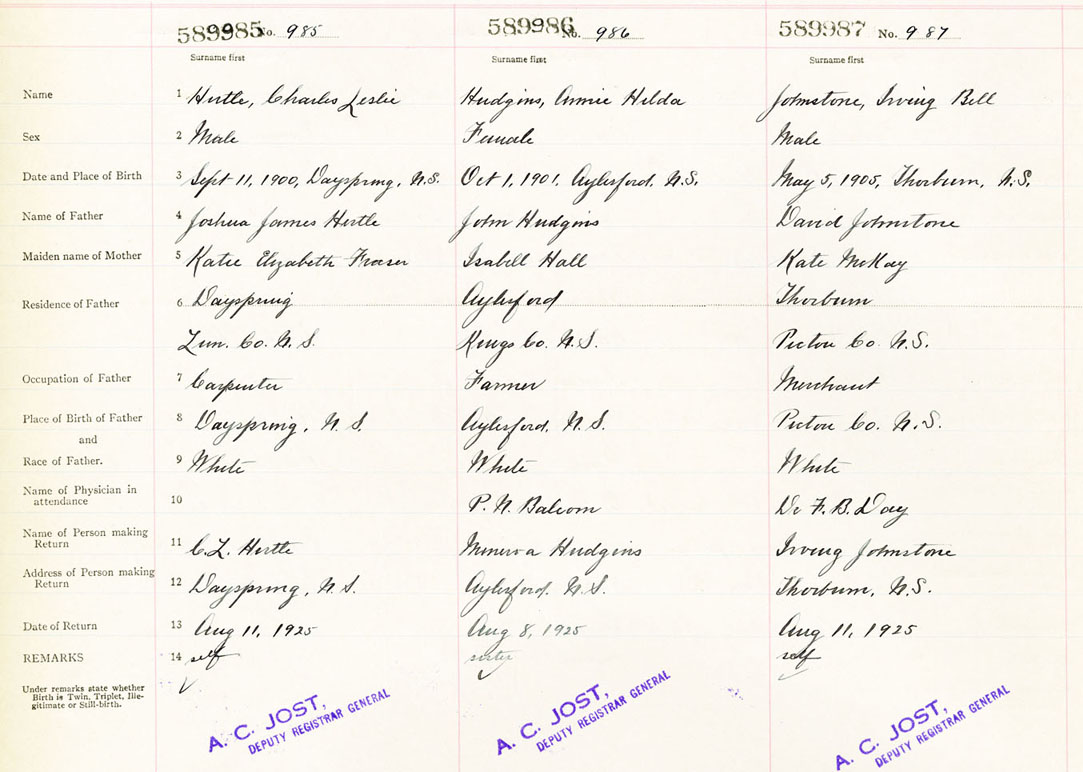 589985 No. 985 589986 No. 986 589987 No. 987
Surname first Surname first Surname first
Name 1 Hirtle, Charles Leslie Hudgins, Annie Hilda Johnstone, Irving Bell
Sex 2 Male Female Male
Date and Place of Birth 3 Sept 11, 1900, Dayspring, N.S. Oct 1, 1901, Aylesford, N.S. May 5, 1905, Thorburn, N.S.
Name of Father 4 Joshua James Hirtle John Hudgins David Johnstone
Maiden name of Mother 5 Katie Elizabeth Fraser Isabell Hall Kate McKay
Residence of Father 6 Dayspring Aylesford Thorburn
Lun. Co. N.S. Kings Co. N.S. Pictou Co. N.S.
Occupation of Father 7 Carpenter Farmer Merchant
Place of Birth of Father 8 Dayspring, N.S. Aylesford, N.S. Pictou Co. N.S.
and
Race of Father. 9 White White White
Name of Physician in
attendance 10 P. N. Balcom Dr F. B. Day
Name of Person making
Return 11 C. L. Hirtle Minerva Hudgins Irving Johnstone
Address of Person making
Return 12 Dayspring, N.S. Aylesford, N.S. Thorburn, N.S.
Date of Return 13 Aug 11, 1925 Aug 8, 1925 Aug 11, 1925
REMARKS 14 self sister self
Under remarks state whether
Birth is Twin, Triplet, Ille-
gitimate or Still-birth.
A. C. JOST, A. C. JOST, A. C. JOST,
DEPUTY REGISTRAR GENERAL DEPUTY REGISTRAR GENERAL DEPUTY REGISTRAR GENERAL